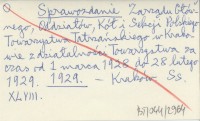 Sprawozdanie Zarządu Głów-
nego, Oddziałów, Kół i Sekcji Polskiego
Towarzystwa Tatrzańskiego w Krako-
wie z działalności Towarzystwa za
czas od 1 marca 1928 do 28 lutego
1929. 1929. – Kraków Ss.
XLVIII.